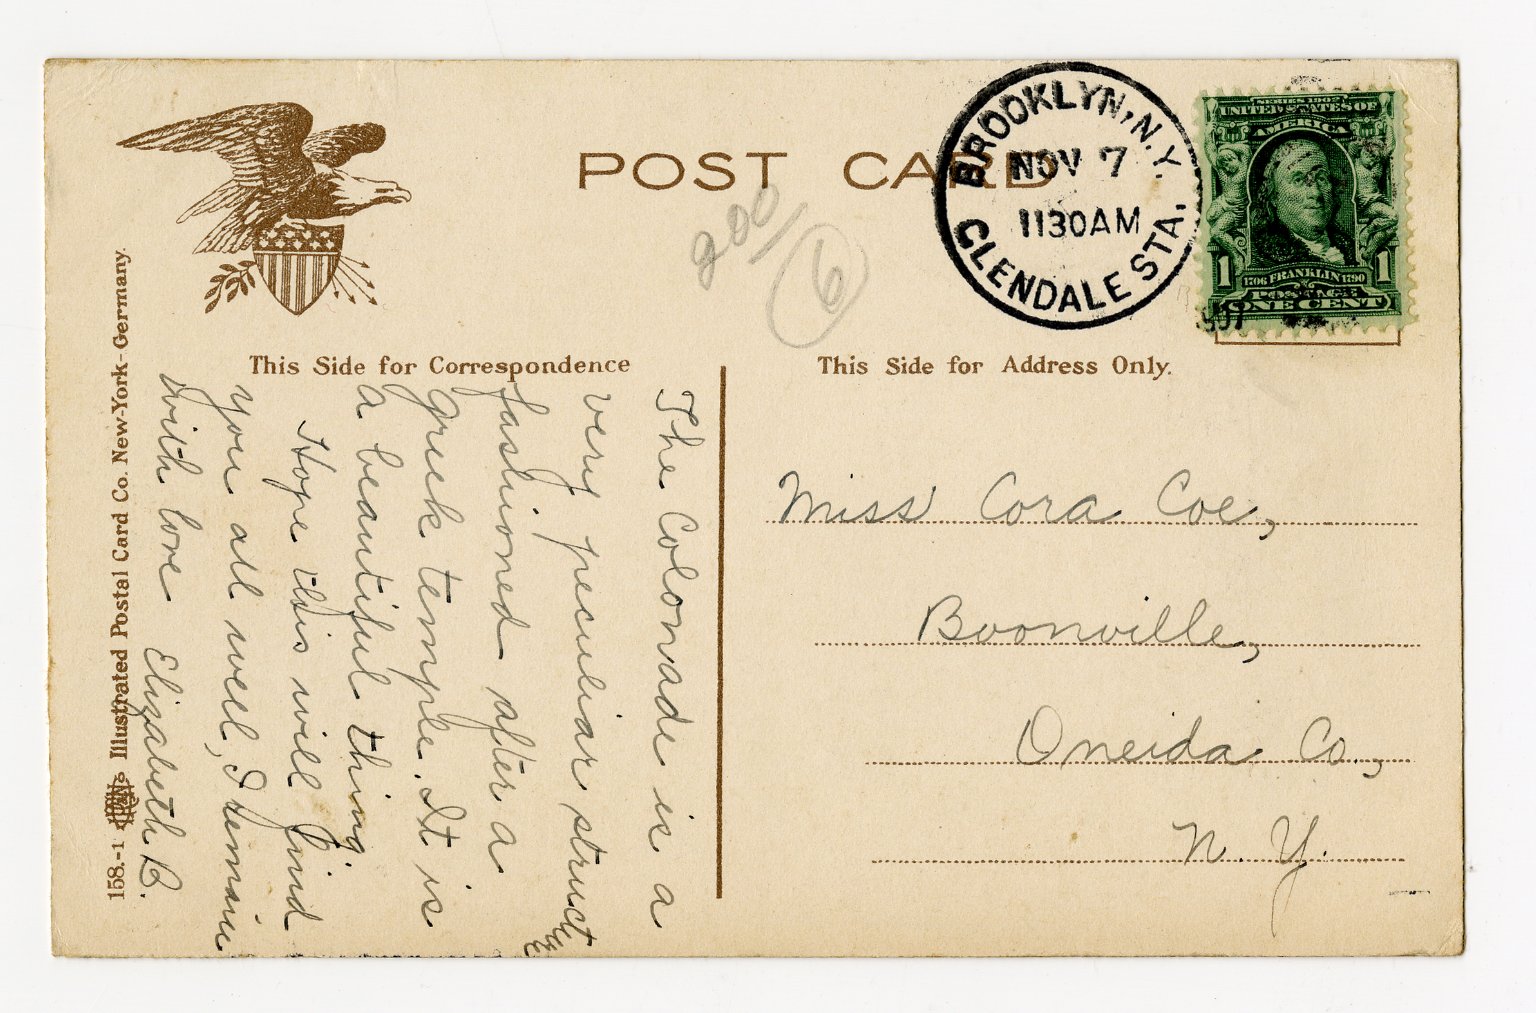 POST CARD
BROOKLYN, N.Y.
NOV 7
1130AM
GLENDALE STA.
1907
SERIES 1902
UNITED STATES OF
AMERICA
1 1
1706 FRANKLIN 1790
POSTAGE
ONE CENT
200/
6
This Side for Correspondence
This Side for Address Only.
The Colonade is a
very peculiar structure
fashioned after a
greek temple. It is
a beautiful thing.
Hope this will find
you all well, I remain
with love Elizabeth R.
Miss Cora Coe,
Boonville,
Oneida Co.,
N. Y.
158.-1 Illustrated Postal Card Co. New-York-Germany.